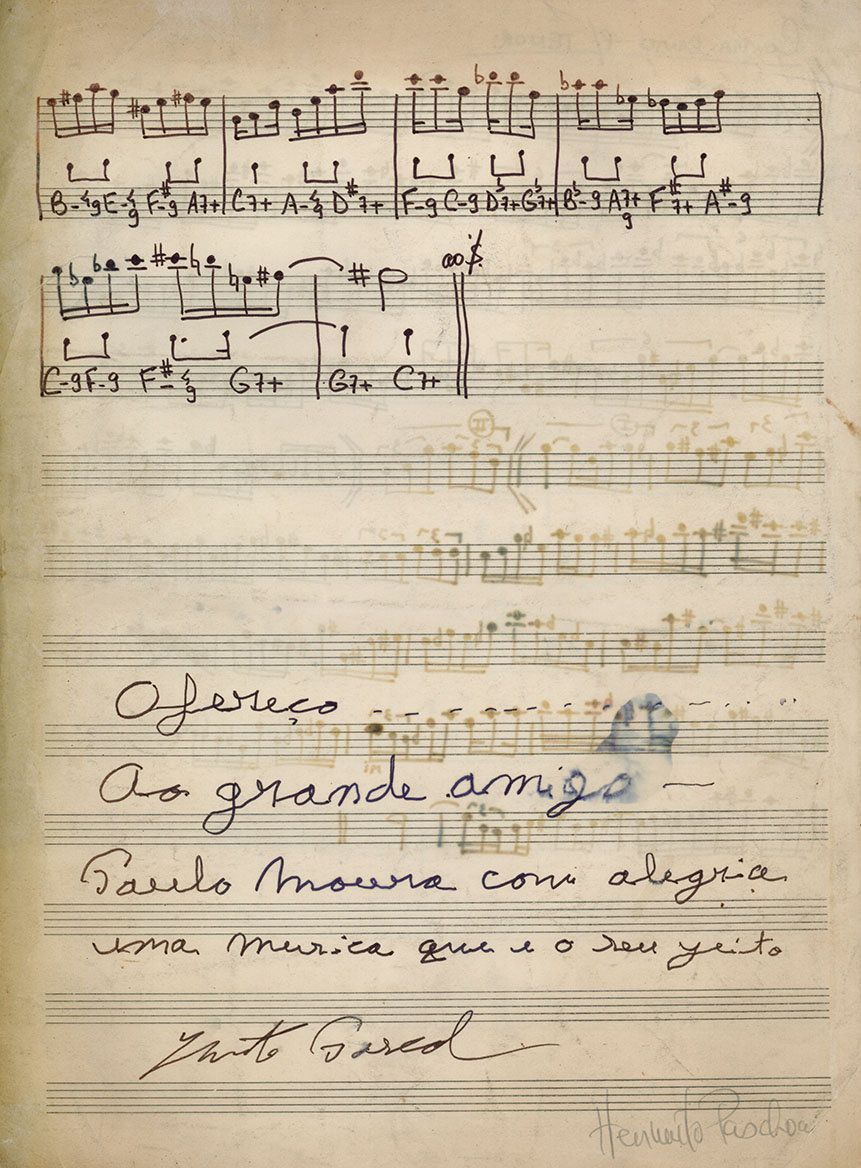 B-4/9 E-4/9 F#-9 A7+ C7+ A-4/9 D#7+ F-9 C-9 Db7+ Gb7+ Bb-9 A7+9 F#7+ A#-9
ao 𝄋
C-9 F-9 F#-4/9 G7+ G7+ C7+
Ofereço - - - - - - - - - - - -
Ao grande amigo —
Paulo Moura com alegria
uma musica que e o seu jeito
Hermeto Pascoal
Hermeto Paschoal